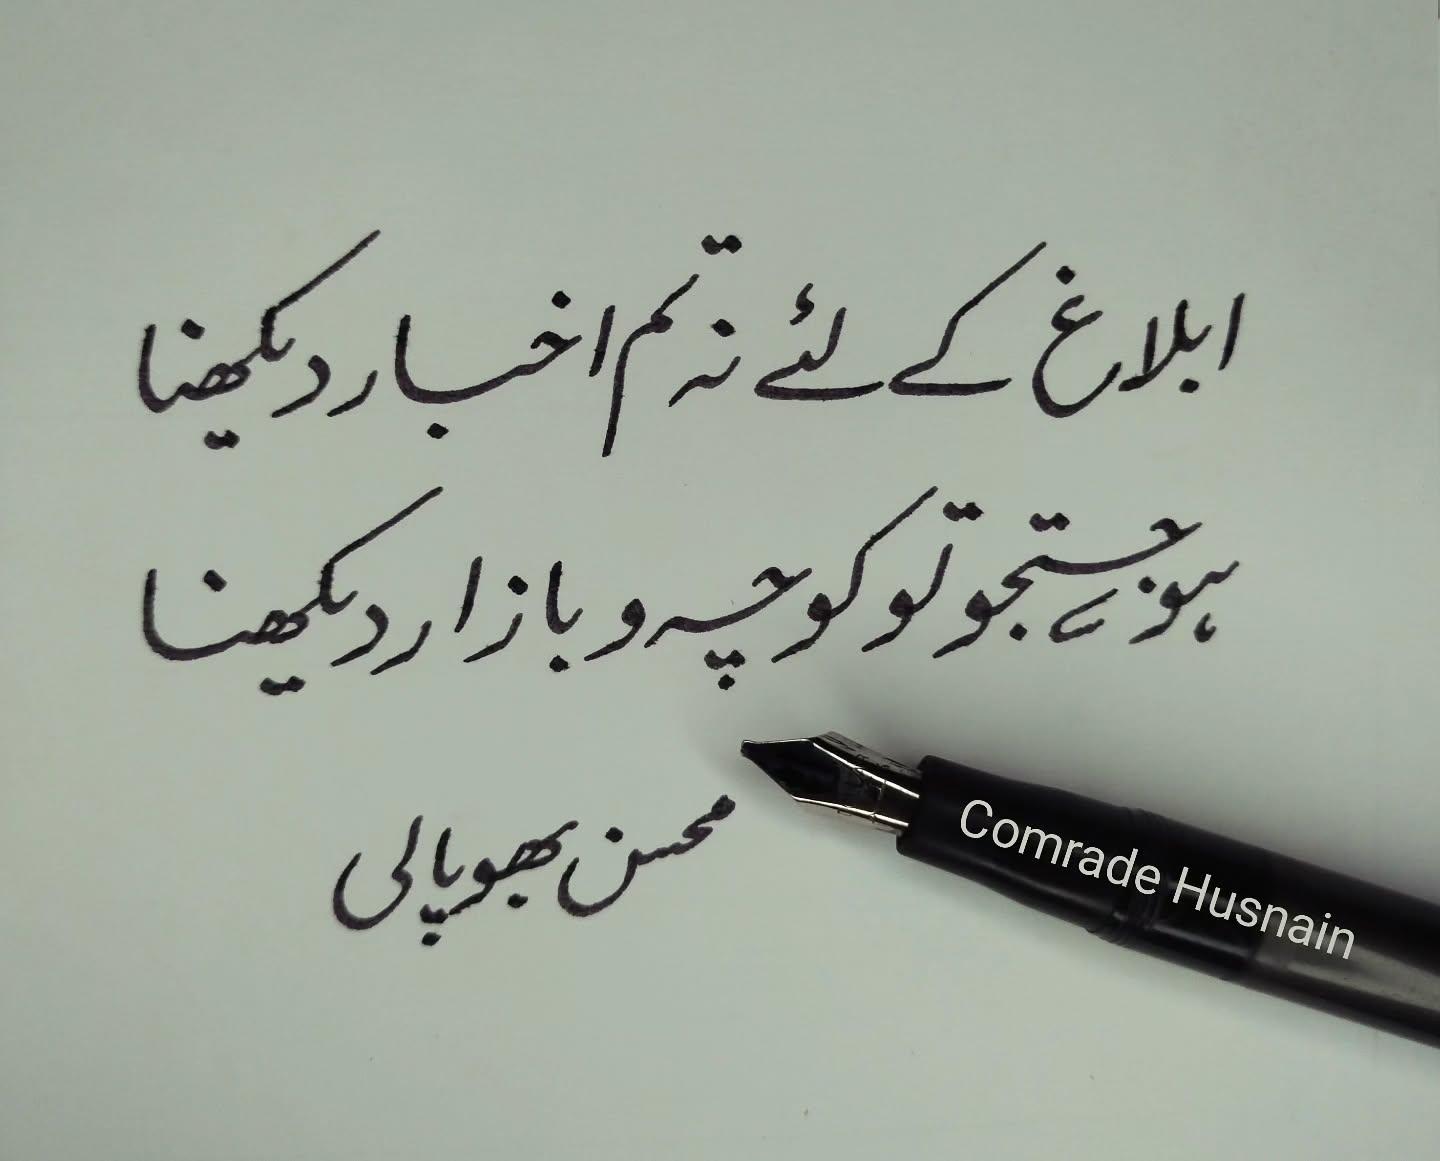 ابلاغ کے لئے نہ تم اخبار دیکھنا
ہو جستجو تو کوچہ و بازار دیکھنا
محسن بھوپالی
Comrade Husnain